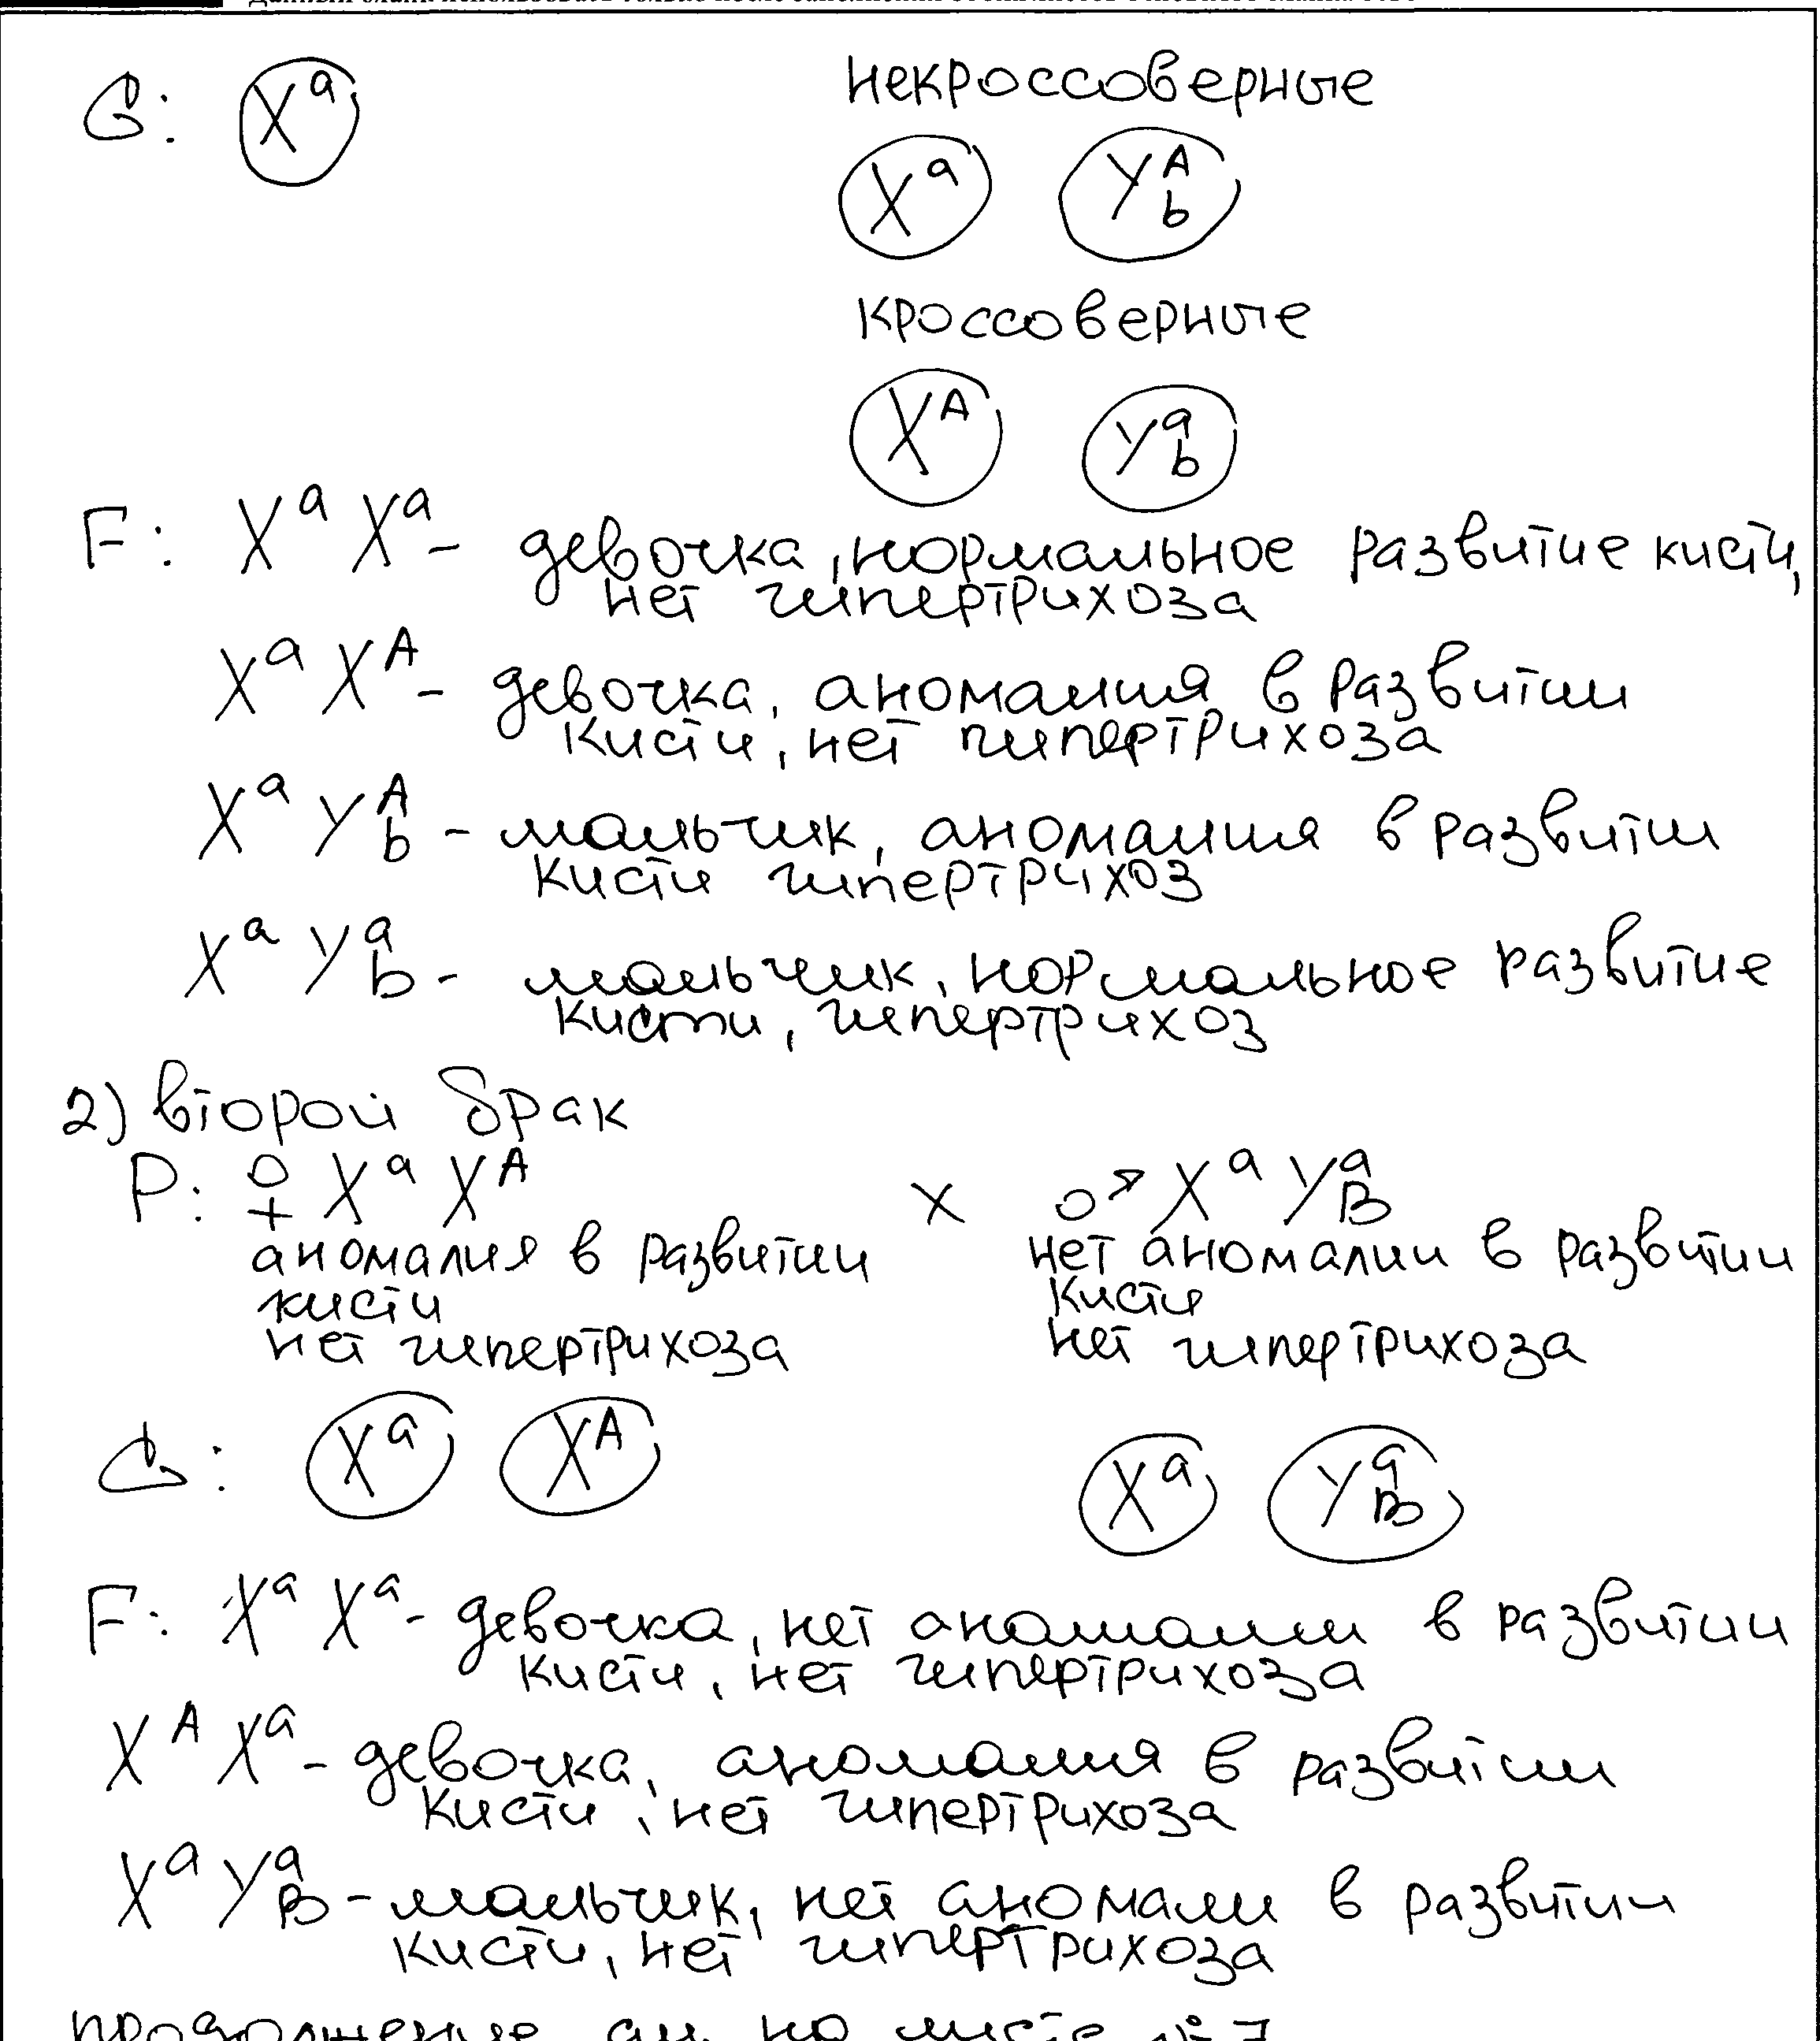 G: Xᵃ
некроссоверные
Xᵃ Yᴬb
кроссоверные
Xᴬ Yᵃb
F: Xᵃ Xᵃ - девочка, нормальное развитие кисти,
нет гипертрихоза
Xᵃ Xᴬ - девочка, аномалия в развитии
кисти, нет гипертрихоза
Xᵃ Yᴬb - мальчик, аномалия в развитии
кисти гипертрихоз
Xᵃ Yᵃb - мальчик, нормальное развитие
кисти, гипертрихоз
2) второй брак
P: ♀ Xᵃ Xᴬ x ♂ Xᵃ YᵃB
аномалия в развитии нет аномалии в развитии
кисти кисти
нет гипертрихоза нет гипертрихоза
G: Xᵃ Xᴬ Xᵃ YᵃB
F: Xᵃ Xᵃ - девочка, нет аномалии в развитии
кисти, нет гипертрихоза
Xᴬ Xᵃ - девочка, аномалия в развитии
кисти, нет гипертрихоза
Xᵃ YᵃB - мальчик, нет аномали в развитии
кисти, нет гипертрихоза
продолжение на листе № 7